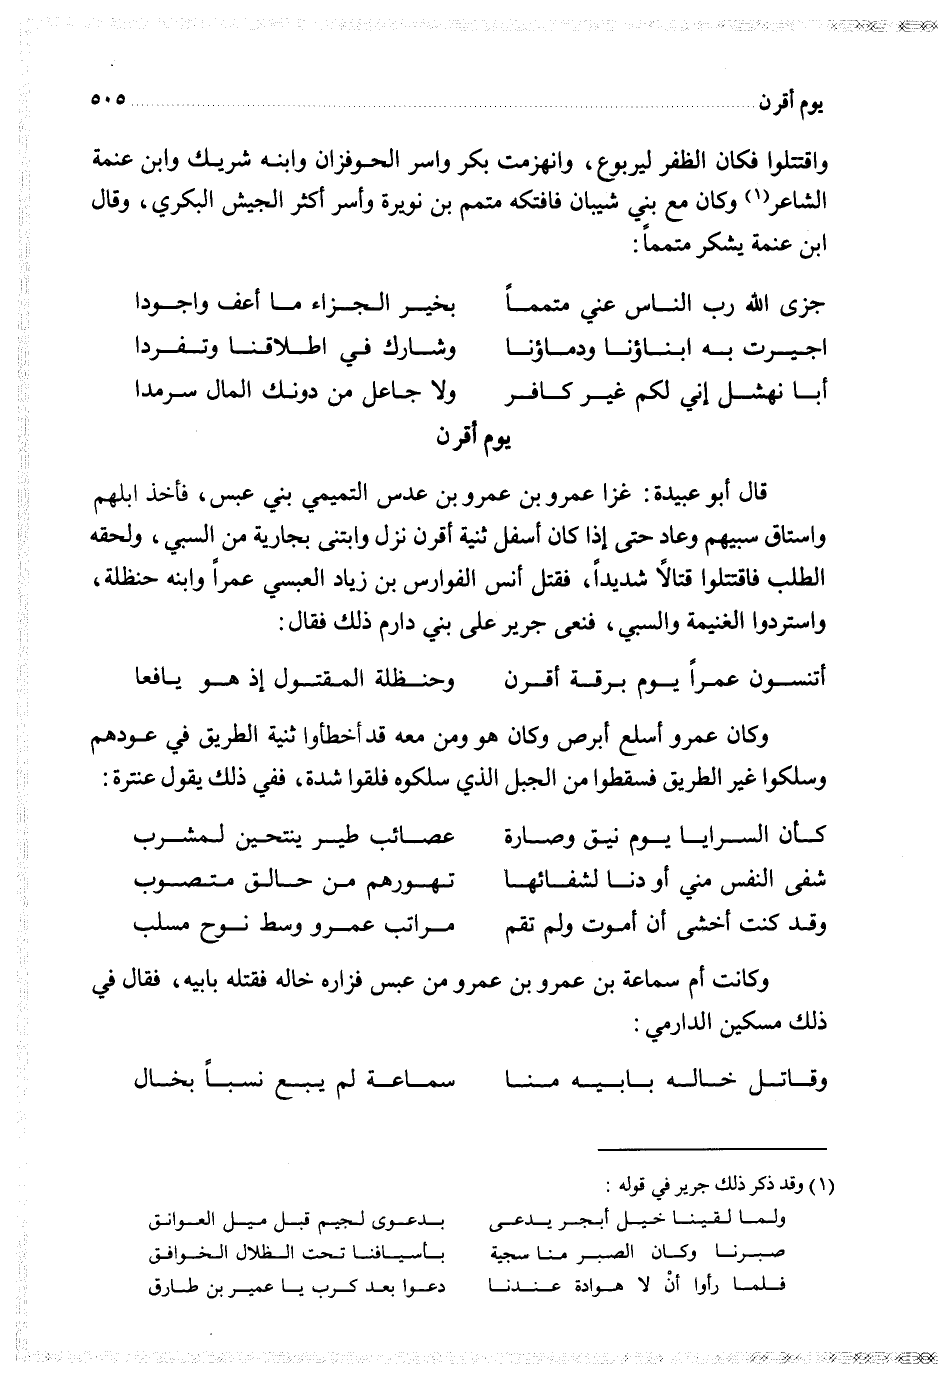 يوم أقرن ........ ٥٠٥
واقتتلوا فكان الظفر ليربوع، وانهزمت بكر واسر الحوفزان وابنه شريك وابن عنمة
الشاعر(١) وكان مع بني شيبان فافتكه متمم بن نويرة وأسر أكثر الجيش البكري، وقال
ابن عنمة يشكر متمماً:
جزى الله رب الناس عني متمماً بخير الجزاء ما أعف واجودا
اجيرت به ابناؤنا ودماؤنا وشارك في اطلاقنا وتفردا
أبا نهشل إني لكم غير كافر ولا جاعل من دونك المال سرمدا
يوم أقرن
قال أبو عبيدة: غزا عمرو بن عمرو بن عدس التميمي بني عبس، فأخذ ابلهم
واستاق سبيهم وعاد حتى إذا كان أسفل ثنية أقرن نزل وابتنى بجارية من السبي، ولحقه
الطلب فاقتتلوا قتالاً شديداً، فقتل أنس الفوارس بن زياد العبسي عمراً وابنه حنظلة،
واستردوا الغنيمة والسبي، فنعى جرير على بني دارم ذلك فقال:
أتنسون عمراً يوم برقة أقرن وحنظلة المقتول إذ هو يافعا
وكان عمرو أسلع أبرص وكان هو ومن معه قد أخطأوا ثنية الطريق في عودهم
وسلكوا غير الطريق فسقطوا من الجبل الذي سلكوه فلقوا شدة، ففي ذلك يقول عنترة:
كأن السرايا يوم نيق وصارة عصائب طير ينتحين لمشرب
شفى النفس مني أو دنا لشفائها تهورهم من حالق متصوب
وقد كنت أخشى أن أموت ولم تقم مراتب عمرو وسط نوح مسلب
وكانت أم سماعة بن عمرو بن عمرو من عبس فزاره خاله فقتله بابيه، فقال في
ذلك مسكين الدارمي:
وقاتل خاله بابيه منا سماعة لم يبع نسباً بخال
(١) وقد ذكر ذلك جرير في قوله:
ولما لقينا خيل أبجر يدعى بدعوى لجيم قبل ميل العوانق
صبرنا وكان الصبر منا سجية بأسيافنا تحت الظلال الخوافق
فلما رأوا أنْ لا هوادة عندنا دعوا بعد كرب يا عمير بن طارق